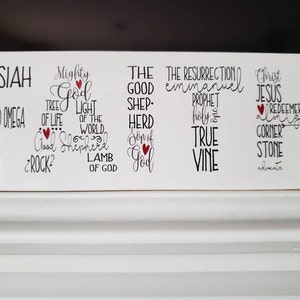 SIAH
OMEGA
Mighty
God
TREE
OF LIFE
LIGHT
OF THE
WORLD
Good Shepherd
ROCK
LAMB
OF GOD
THE
GOOD
SHEP-
HERD
Son of
God
THE RESURRECTION
emmanuel
PROPHET
holy one
TRUE
VINE
Christ
JESUS
REDEEMER
CORNER
STONE
advocate